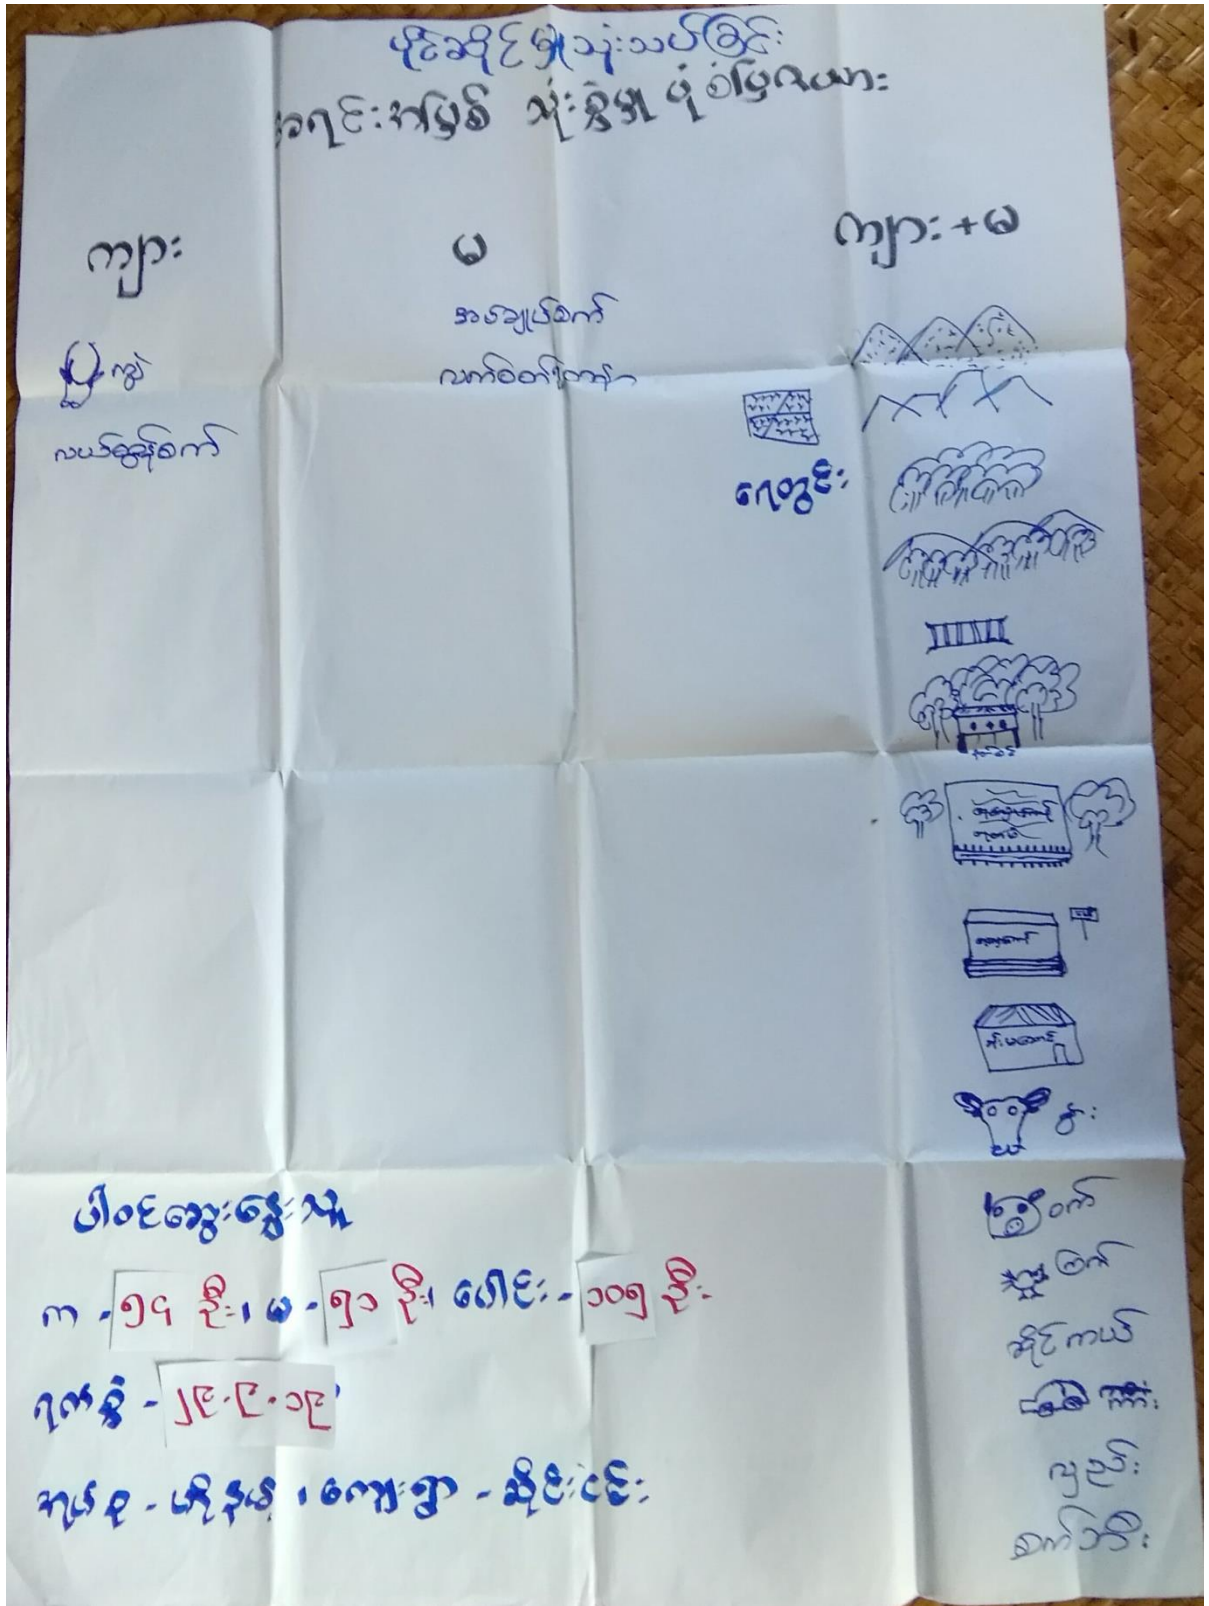 ပိုင်ဆိုင်မှုသုံးသပ်ခြင်း
အရင်းအမြစ် သုံးစွဲမှု ပုံစံပြဇယား
ကျား မ ကျား + မ
အပ်ချုပ်စက်
ကျွဲ
လယ်ထွန်စက်
ရေတွင်း
နွား
ဝက်
ကြက်
ဆိုင်ကယ်
ကား
လှည်း
စက်ဘီး
ပါဝင်ဆွေးနွေးသူ
က - ၅၄ ဦး၊ မ - ၅၁ ဦး၊ ပေါင်း - ၁၀၅ ဦး
ရက်စွဲ - ၂၉.၉.၁၉
အုပ်စု - ဟိုနမ့် ၊ ကျေးရွာ - ဆိုင်းငင်း